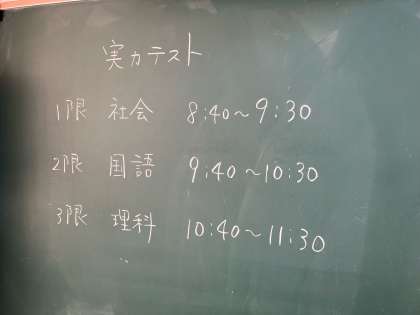 実力テスト
1限 社会 8:40～9:30
2限 国語 9:40～10:30
3限 理科 10:40～11:30